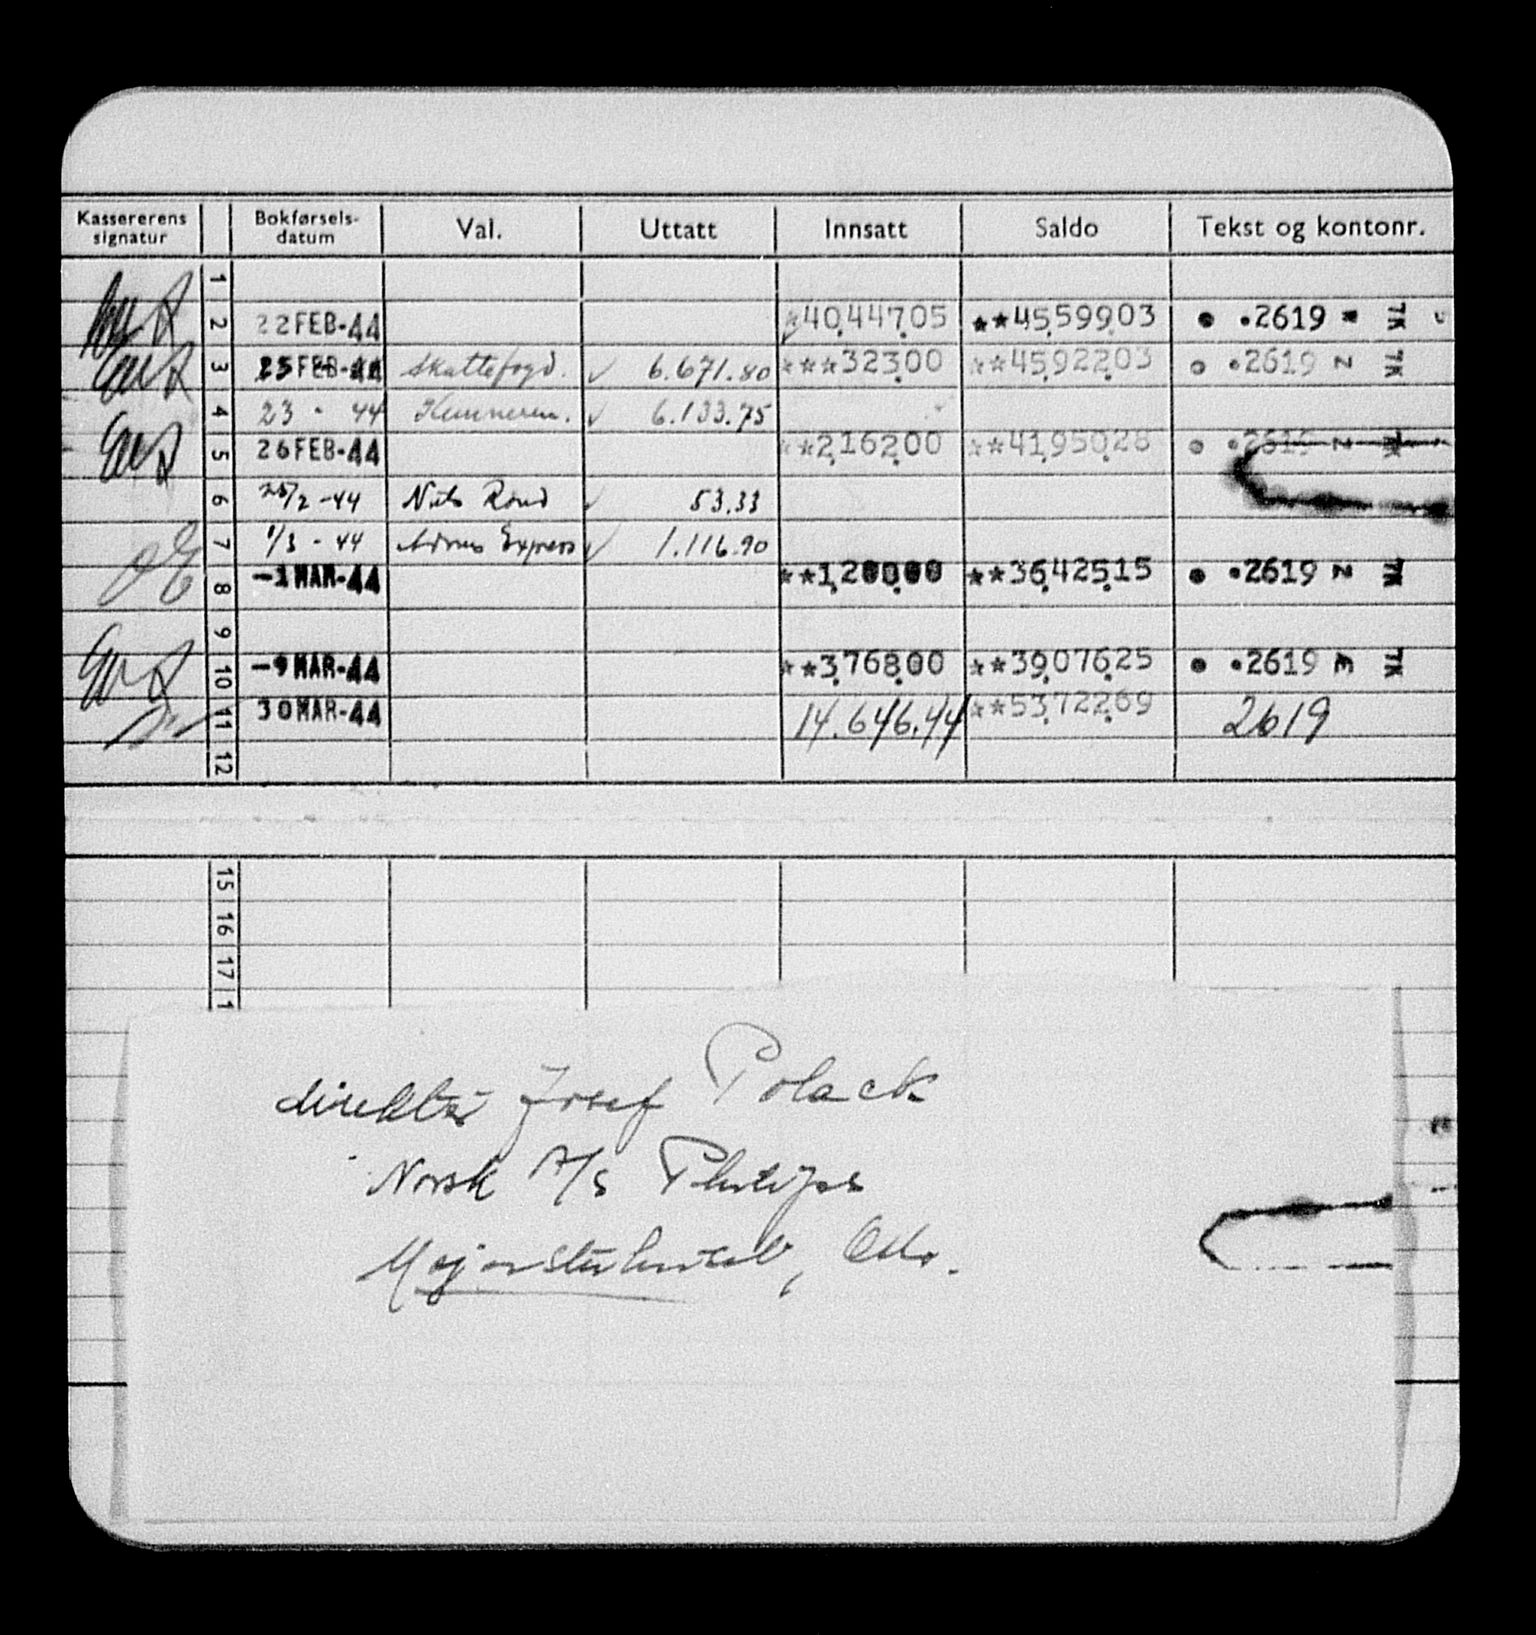 Kassererens signatur Bokførsels-datum Val. Uttatt Innsatt Saldo Tekst og kontonr.
1
2 22FEB-44 *40,447.05 **45,599.03 .2619 * TK
3 25FEB-44 Skattefogd. 6.671.80 ***323.00 **45,922.03 .2619 Z TK
4 23 - 44 Kemneren. 6.133.75
5 26FEB-44 **2,162.00 **41,950.28 .2619 Z TK
6 /2 -44 Nils 53.33
7 1/3 - 44 Express 1.116.90
8 -1MAR-44 **1,200.00 **36,425.15 .2619 Z TK
9
10 -9MAR-44 **3,768.00 **39,076.25 .2619 TK
11 30MAR-44 14.646.44 **53,722.69 2619
12
15
16
17
1
direktør Josef Polack
Norsk A/S Philips
Majorstuhuset, Oslo.